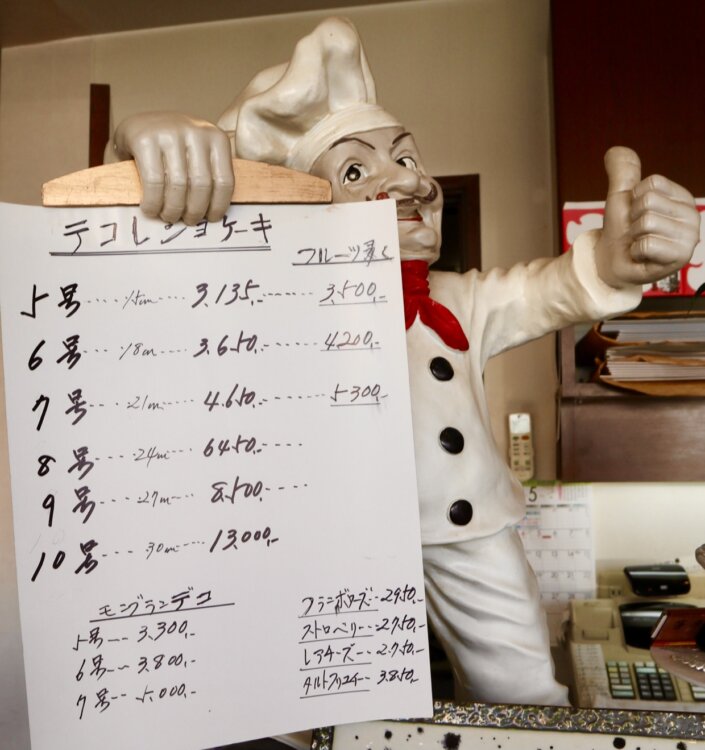 デコレションケーキ
フルーツ多く
5号‥‥15cm‥‥3,135.-‥‥‥3,500.-
6号‥‥18cm‥‥3,650.-‥‥‥4,200.-
7号‥‥21cm‥‥4,650.-‥‥‥5,300.-
8号‥‥24cm‥‥6450.-‥‥
9号‥‥27cm‥‥8,500.-‥‥
10号‥‥30cm‥‥13,000.-
モンブランデコ
5号‥‥3,300.-
6号‥‥3,800.-
7号‥‥5,000.-
フランボワーズ‥2950.-
ストロベリー‥2,750.-
レアチーズ‥2,750.-
タルトフリュイ 3,850.-
5